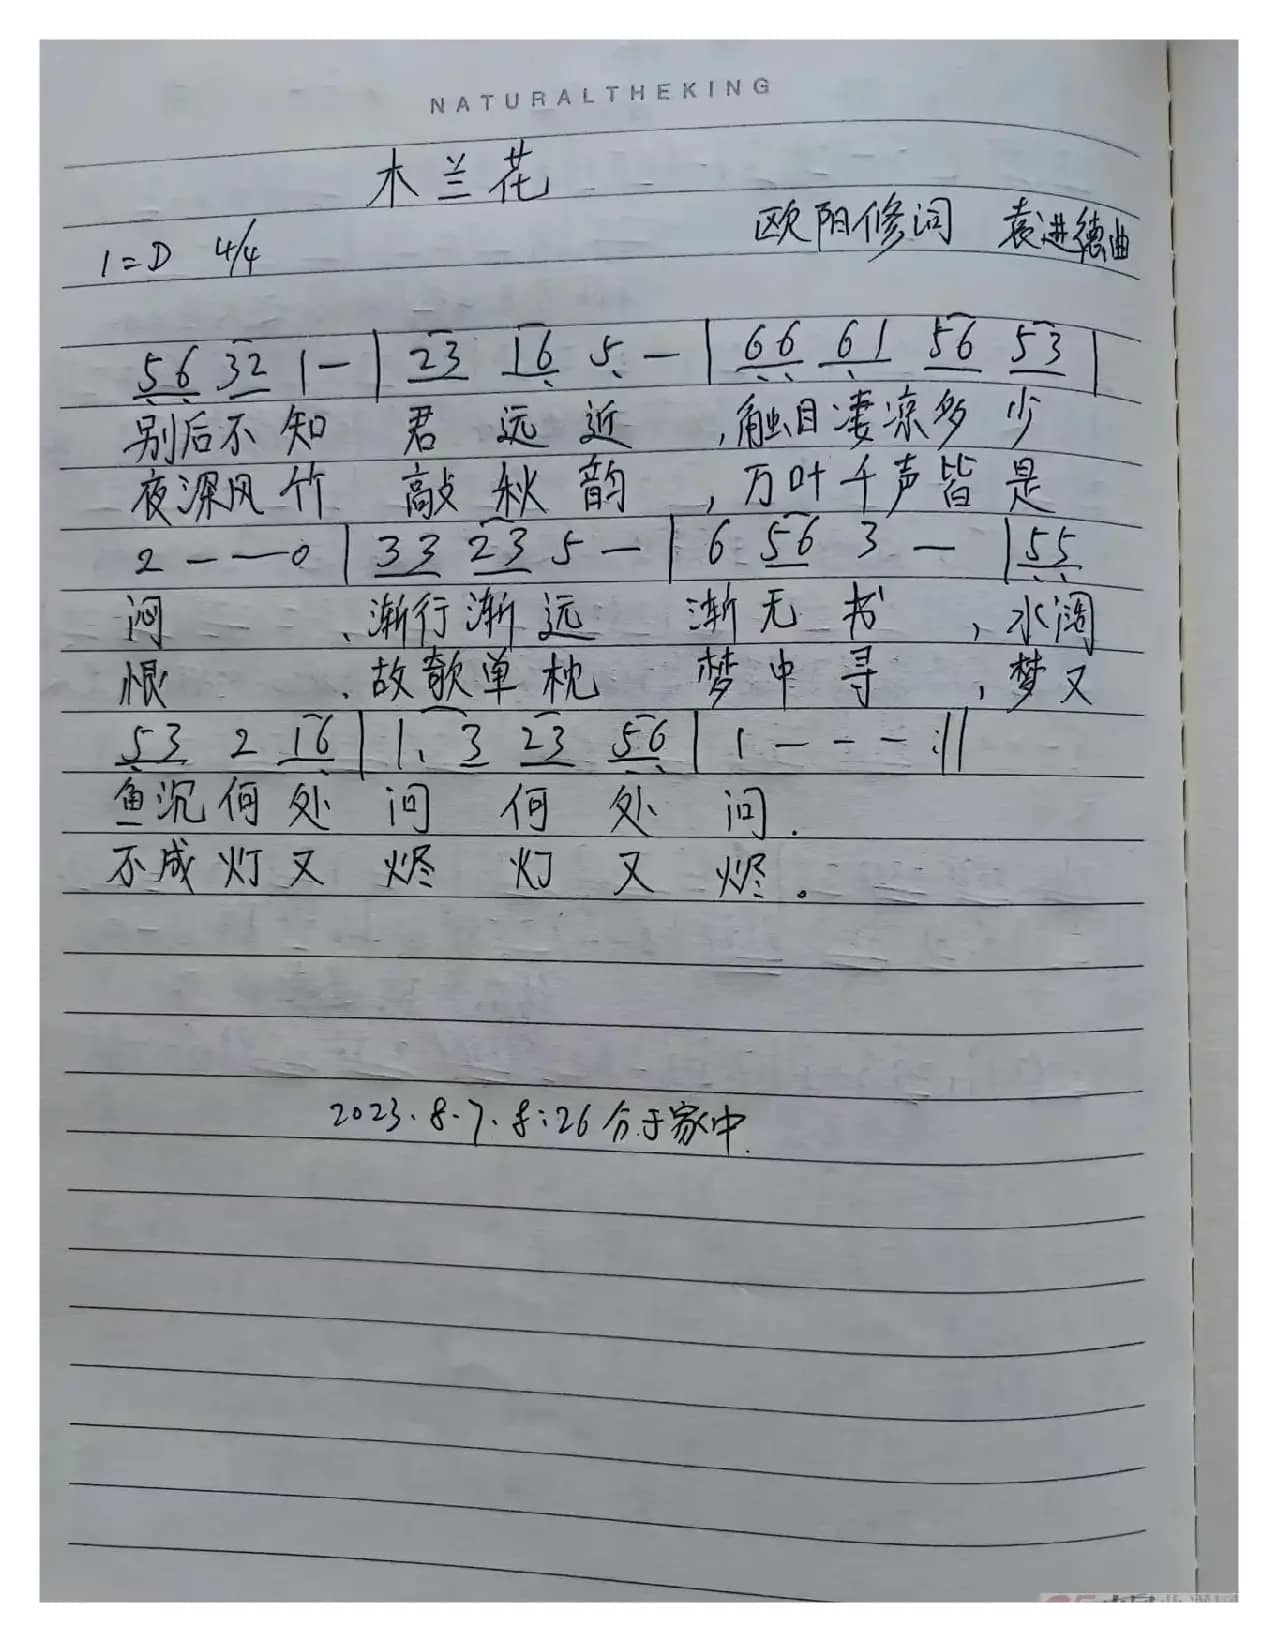 NATURALTHEKING
木兰花
1=D 4/4 欧阳修词 袁进德曲
56 32 1 - | 23 16 5 - | 66 61 56 53 |
别后不知 君远近 ,触目凄凉多少
夜深风竹 敲秋韵 ,万叶千声皆是
2 - - 0 | 33 23 5 - | 6 56 3 - | 55
闷 、渐行渐远 渐无书 ,水阔
恨 、故欹单枕 梦中寻 ,梦又
53 2 16 | 1. 3 23 56 | 1 - - - :||
鱼沉何处 问何处 问.
不成灯又 烬灯又 烬。
2023.8.7.8:26分于家中.